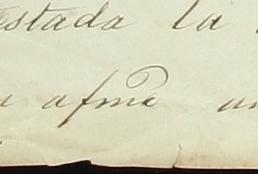 estada la
afma